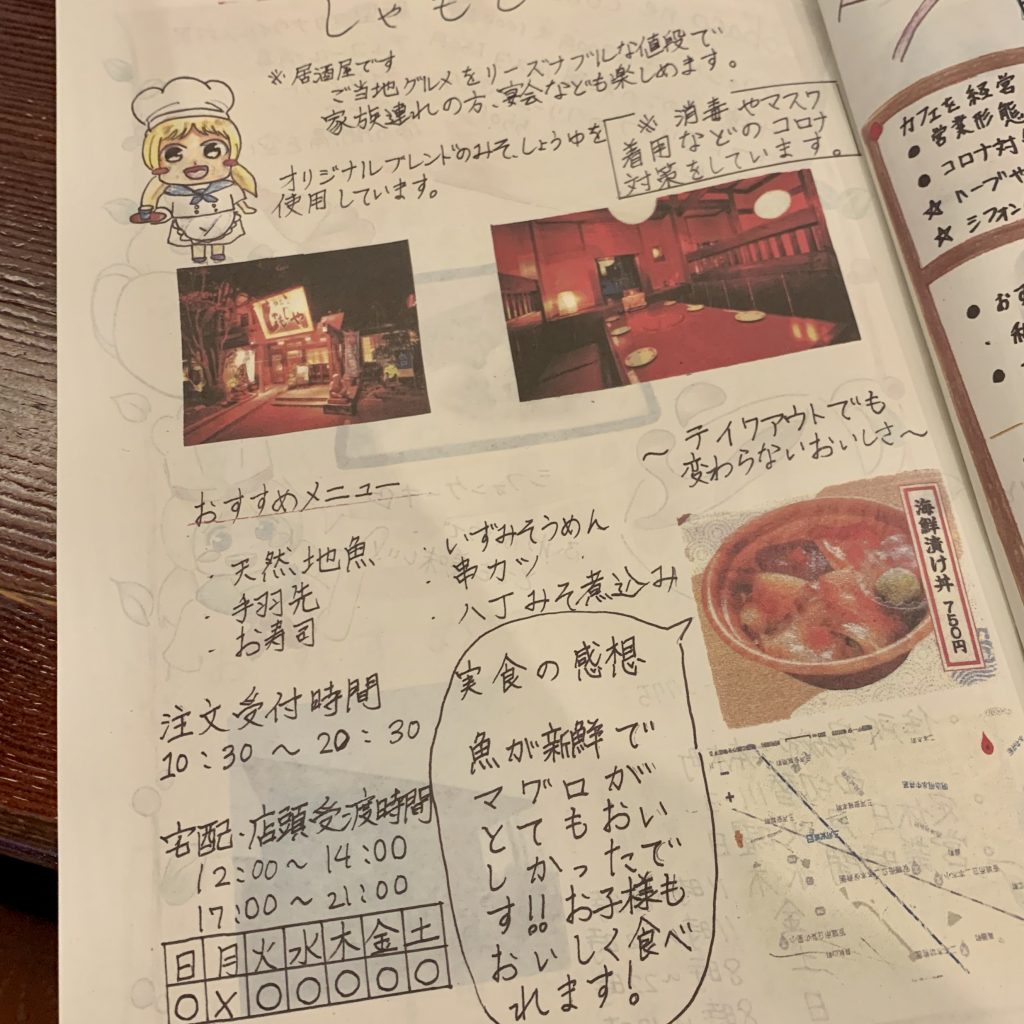 しゃもじ
※居酒屋です
ご当地グルメをリーズナブルな値段で
家族連れの方、宴会なども楽しめます。
オリジナルブレンドのみそ、しょうゆを
使用しています。
※消毒やマスク
着用などのコロナ
対策をしています。
しゃもじや
~テイクアウトでも
変わらないおいしさ~
おすすめメニュー
・天然地魚
・手羽先
・お寿司
・いずみそうめん
・串カツ
・八丁みそ煮込み
海鮮漬け丼 750円
注文受付時間
10:30~20:30
宅配・店頭受渡時間
12:00~14:00
17:00~21:00
日 月 火 水 木 金 土
○ X ○ ○ ○ ○ ○
実食の感想
魚が新鮮で
マグロが
とてもおい
しかったで
す!!お子様も
おいしく食べ
れます!
カフェを経営
営業形態
●コロナ対
☆ハーブや
☆シフォン
●おす